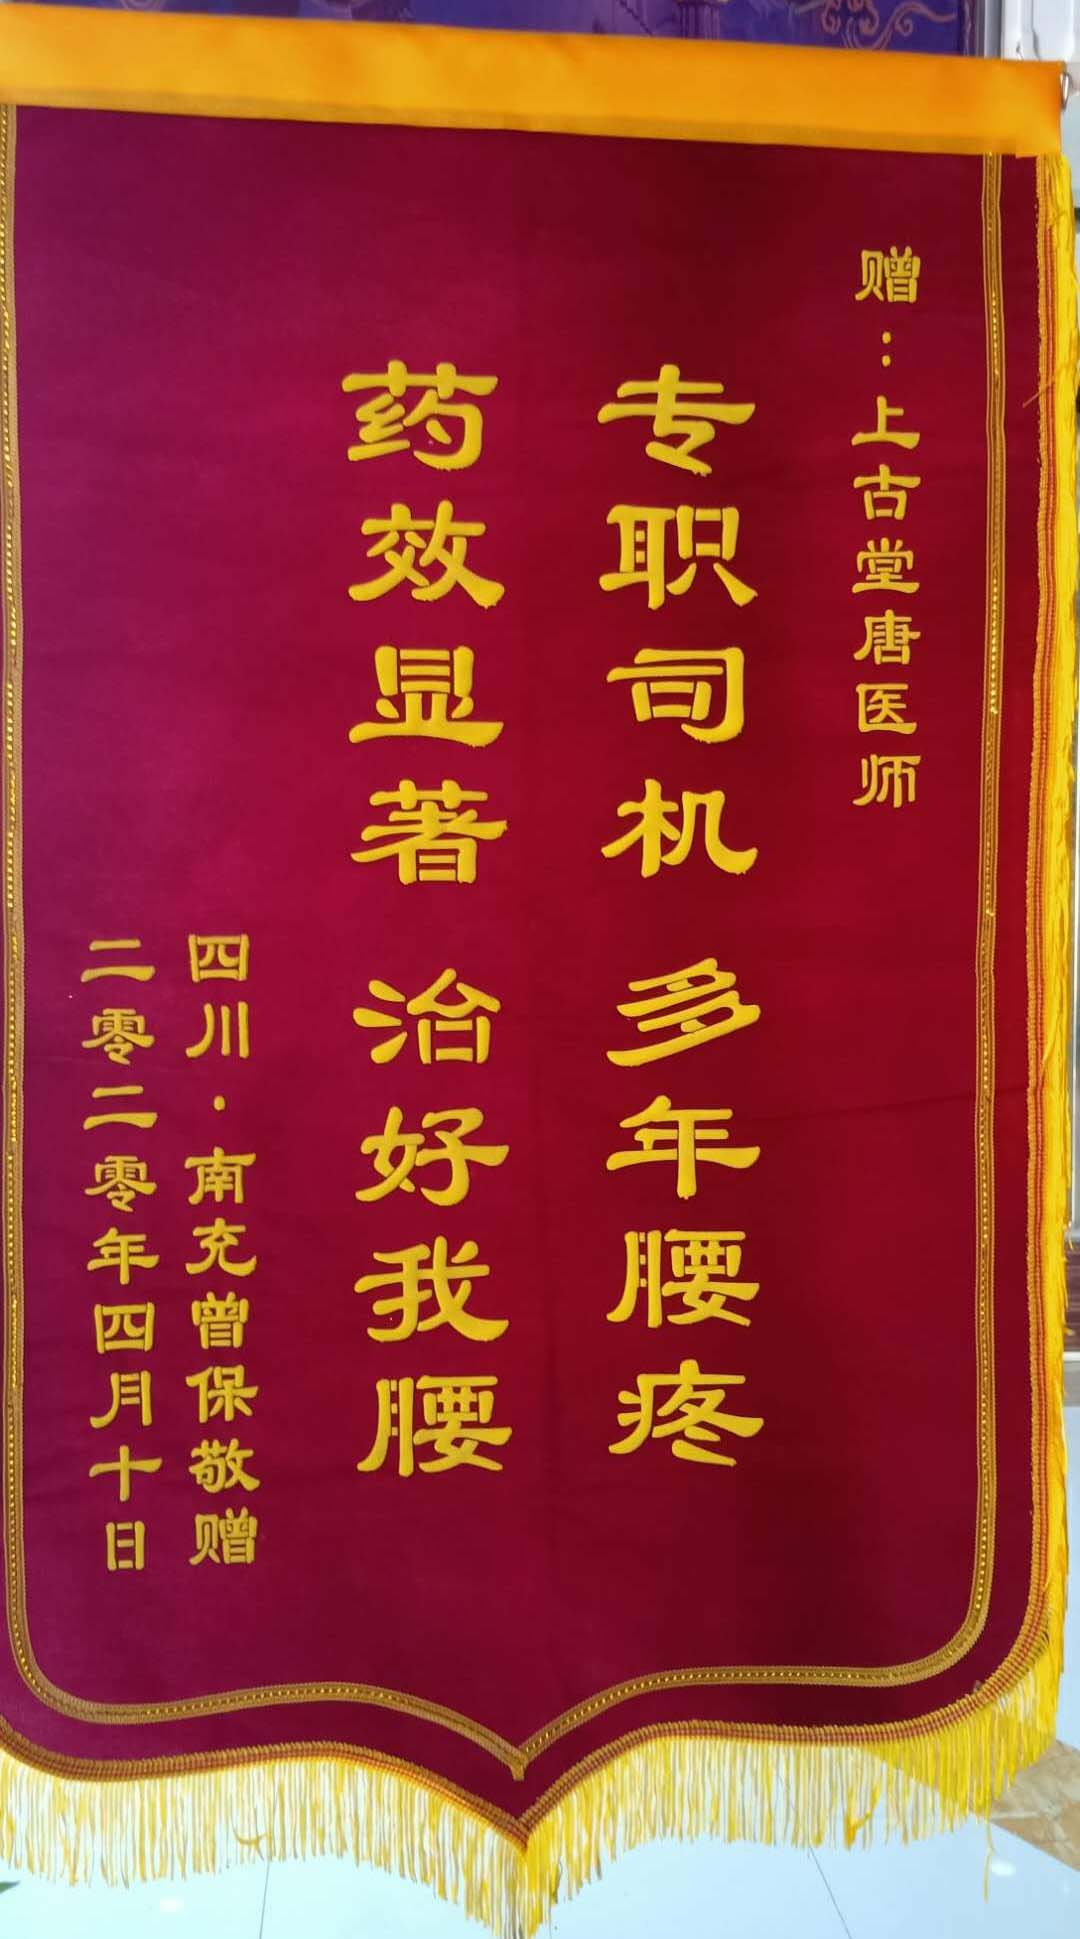 赠：上古堂唐医师
专职司机 多年腰疼
药效显著 治好我腰
四川·南充曾保敬赠
二零二零年四月十日